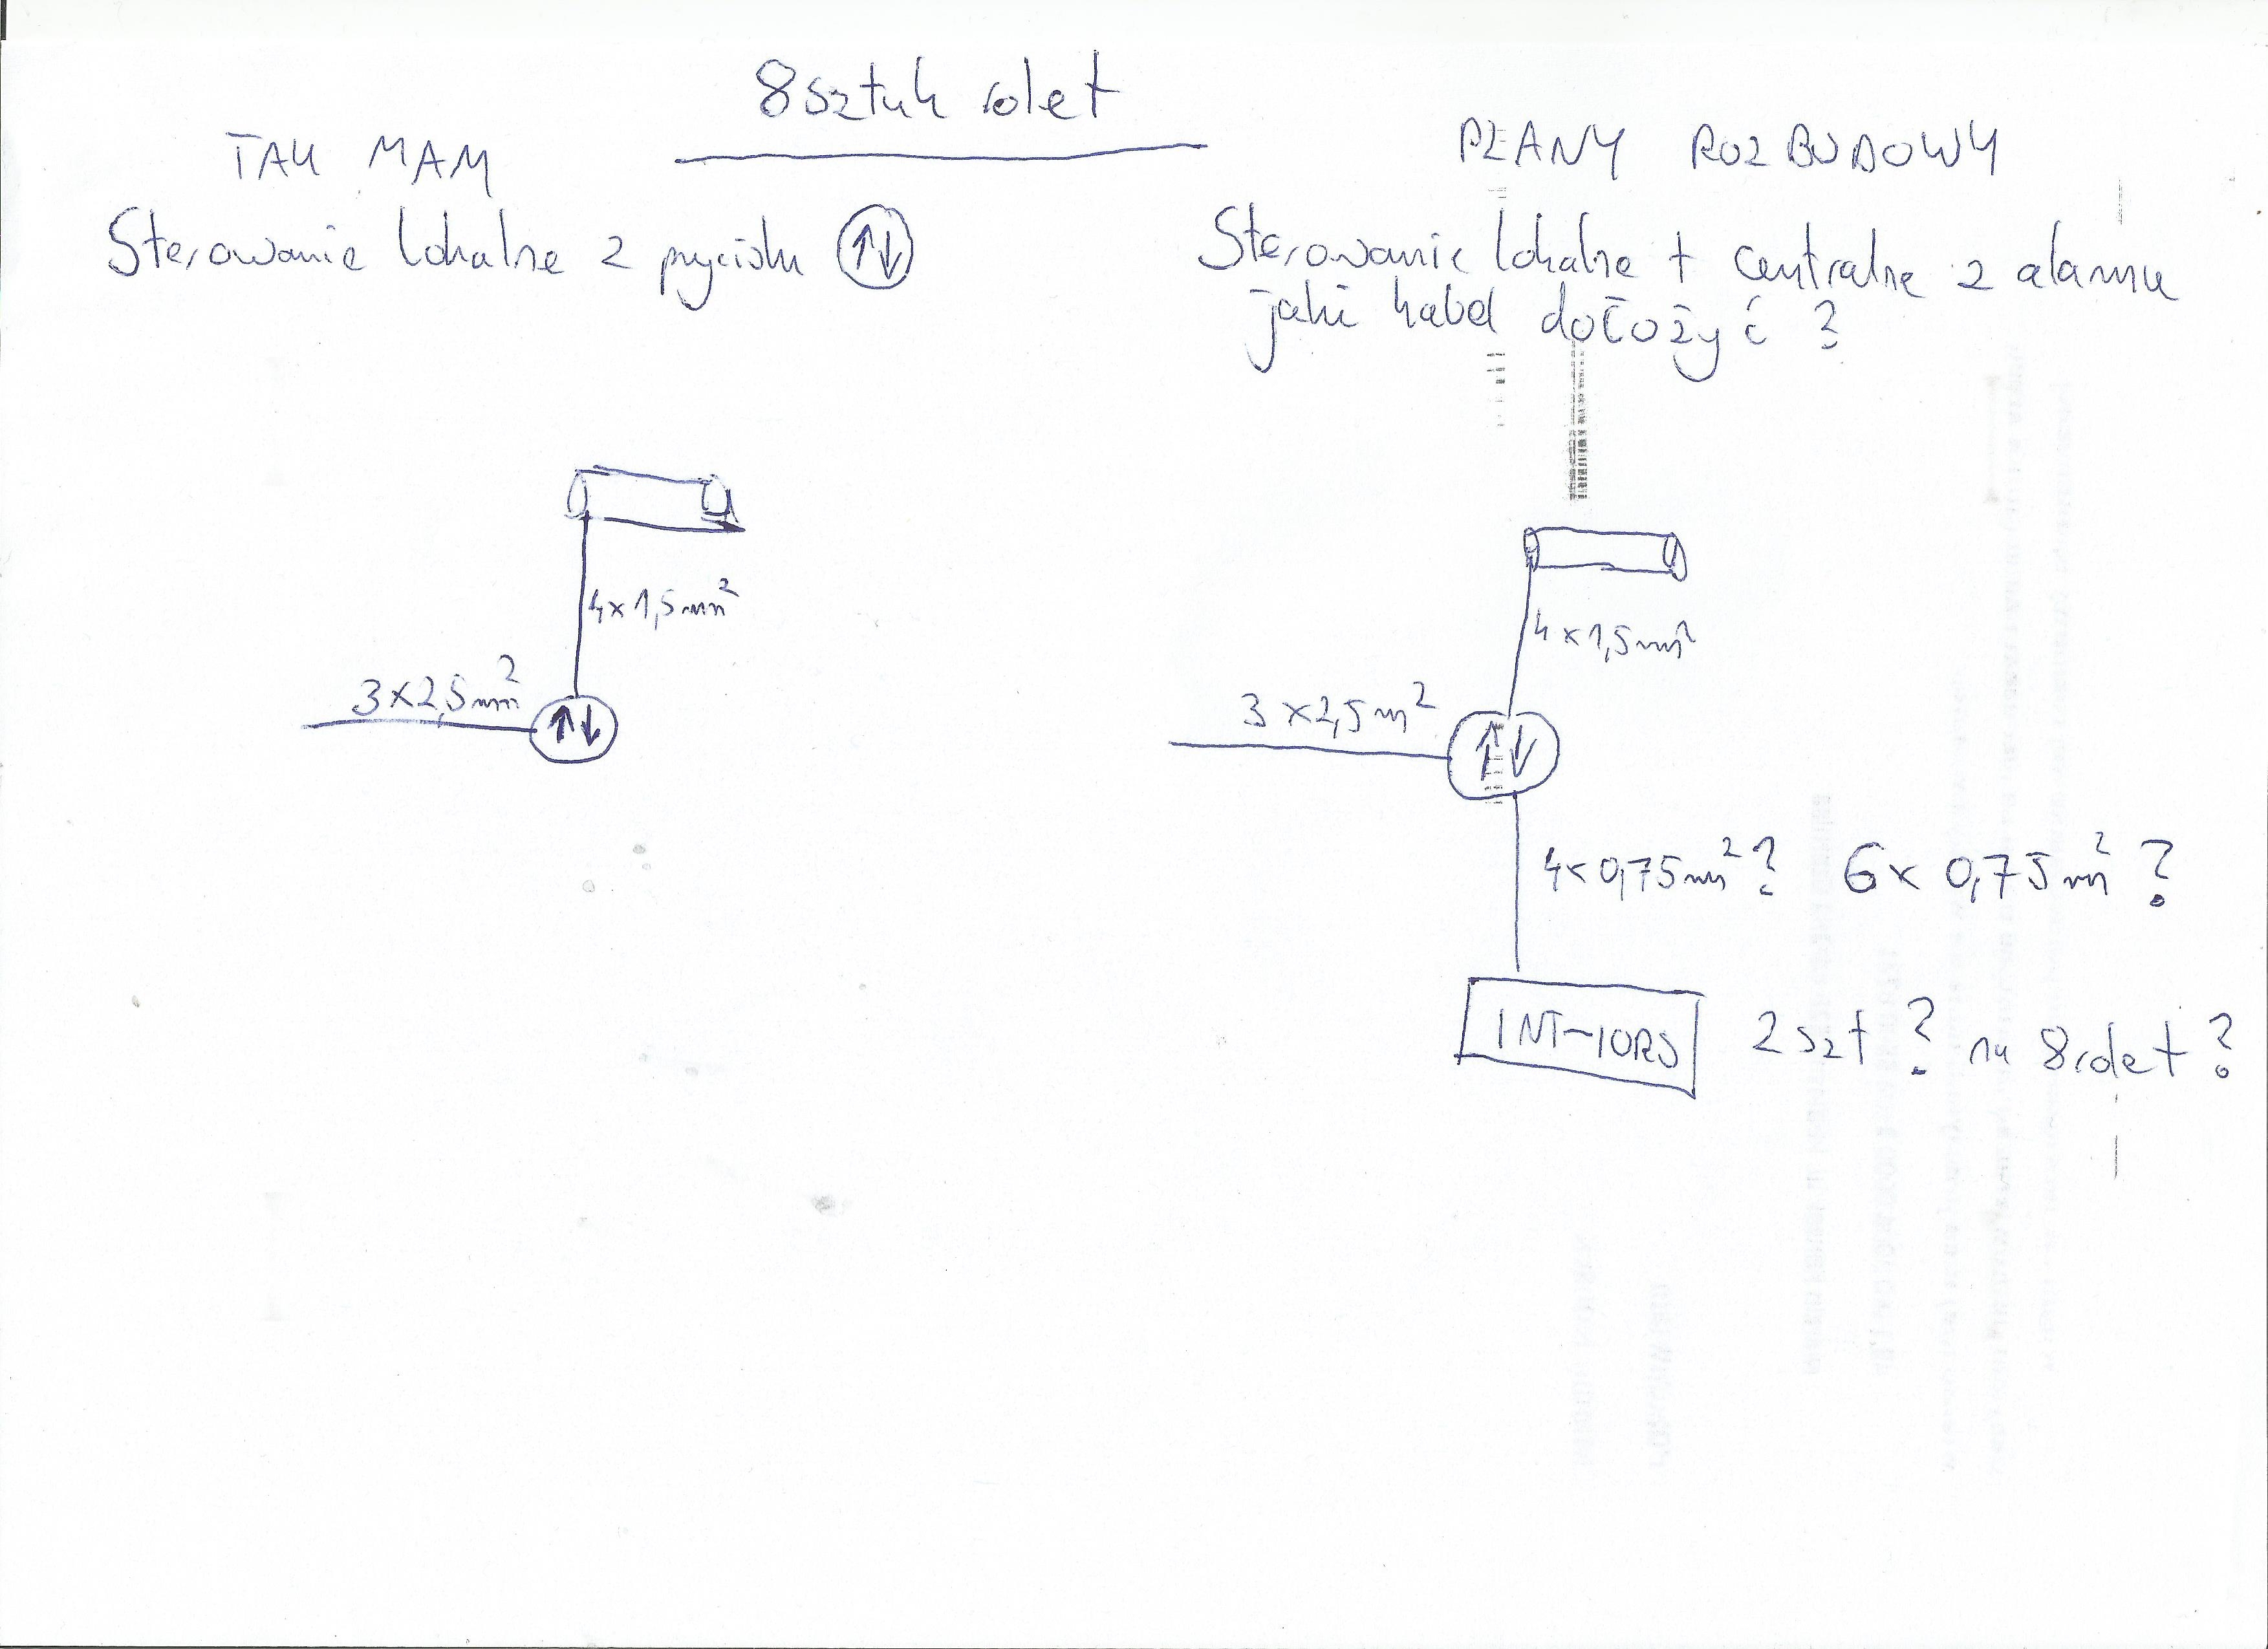 8 sztuk rolet
TAK MAM
Sterowanie lokalne z przycisku ↑↓
4x1,5mm²
3x2,5mm²
↑↓
PLANY ROZBUDOWY
Sterowanie lokalne + centralne z alarmu
jaki kabel dołożyć ?
4x1,5mm²
3x2,5m²
↑↓
4x0,75mm² ? 6x0,75m² ?
INT-IORS 2szt ? na 8rolet ?